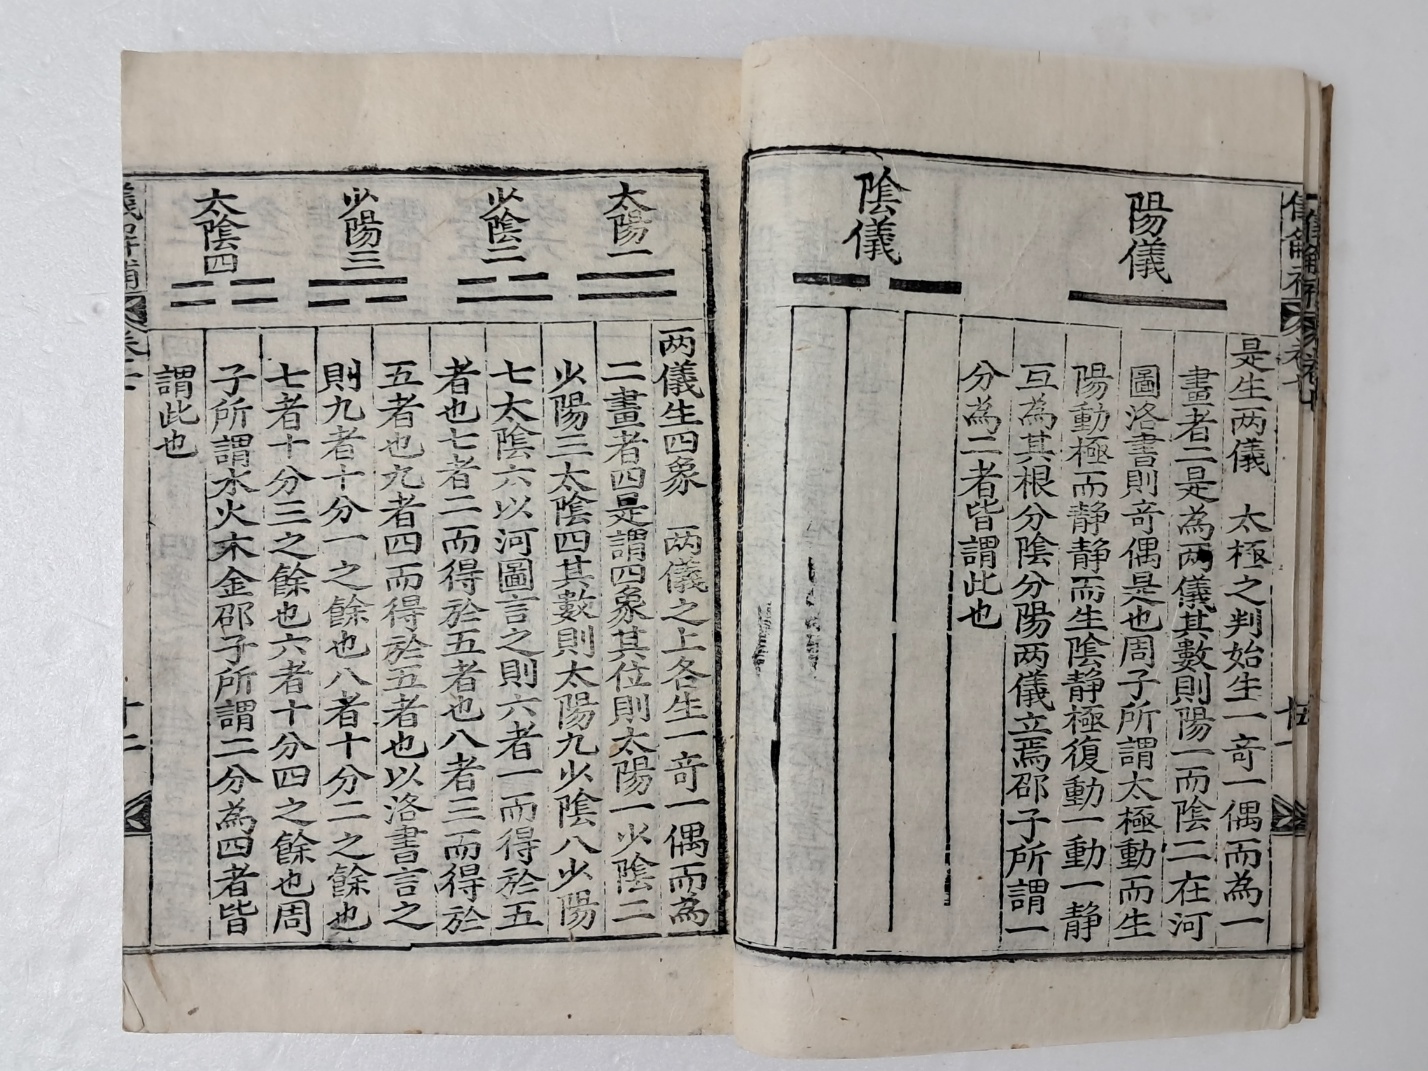 陽儀
陰儀
是生两儀　太極之判始生一奇一偶而為一
畫者二是為两儀其數則陽一而陰二在河
圖洛書則奇偶是也周子所謂太極動而生
陽動極而静静而生陰静極復動一動一静
互為其根分陰分陽两儀立焉邵子所謂一
分為二者皆謂此也
太陽一
少陰二
少陽三
太陰四
两儀生四象　两儀之上各生一奇一偶而為
二畫者四是謂四象其位則太陽一少陰二
少陽三太陰四其數則太陽九少陰八少陽
七太陰六以河圖言之則六者一而得於五
者也七者二而得於五者也八者三而得於
五者也九者四而得於五者也以洛書言之
則九者十分一之餘也八者十分二之餘也
七者十分三之餘也六者十分四之餘也周
子所謂水火木金邵子所謂二分為四者皆
謂此也
十二